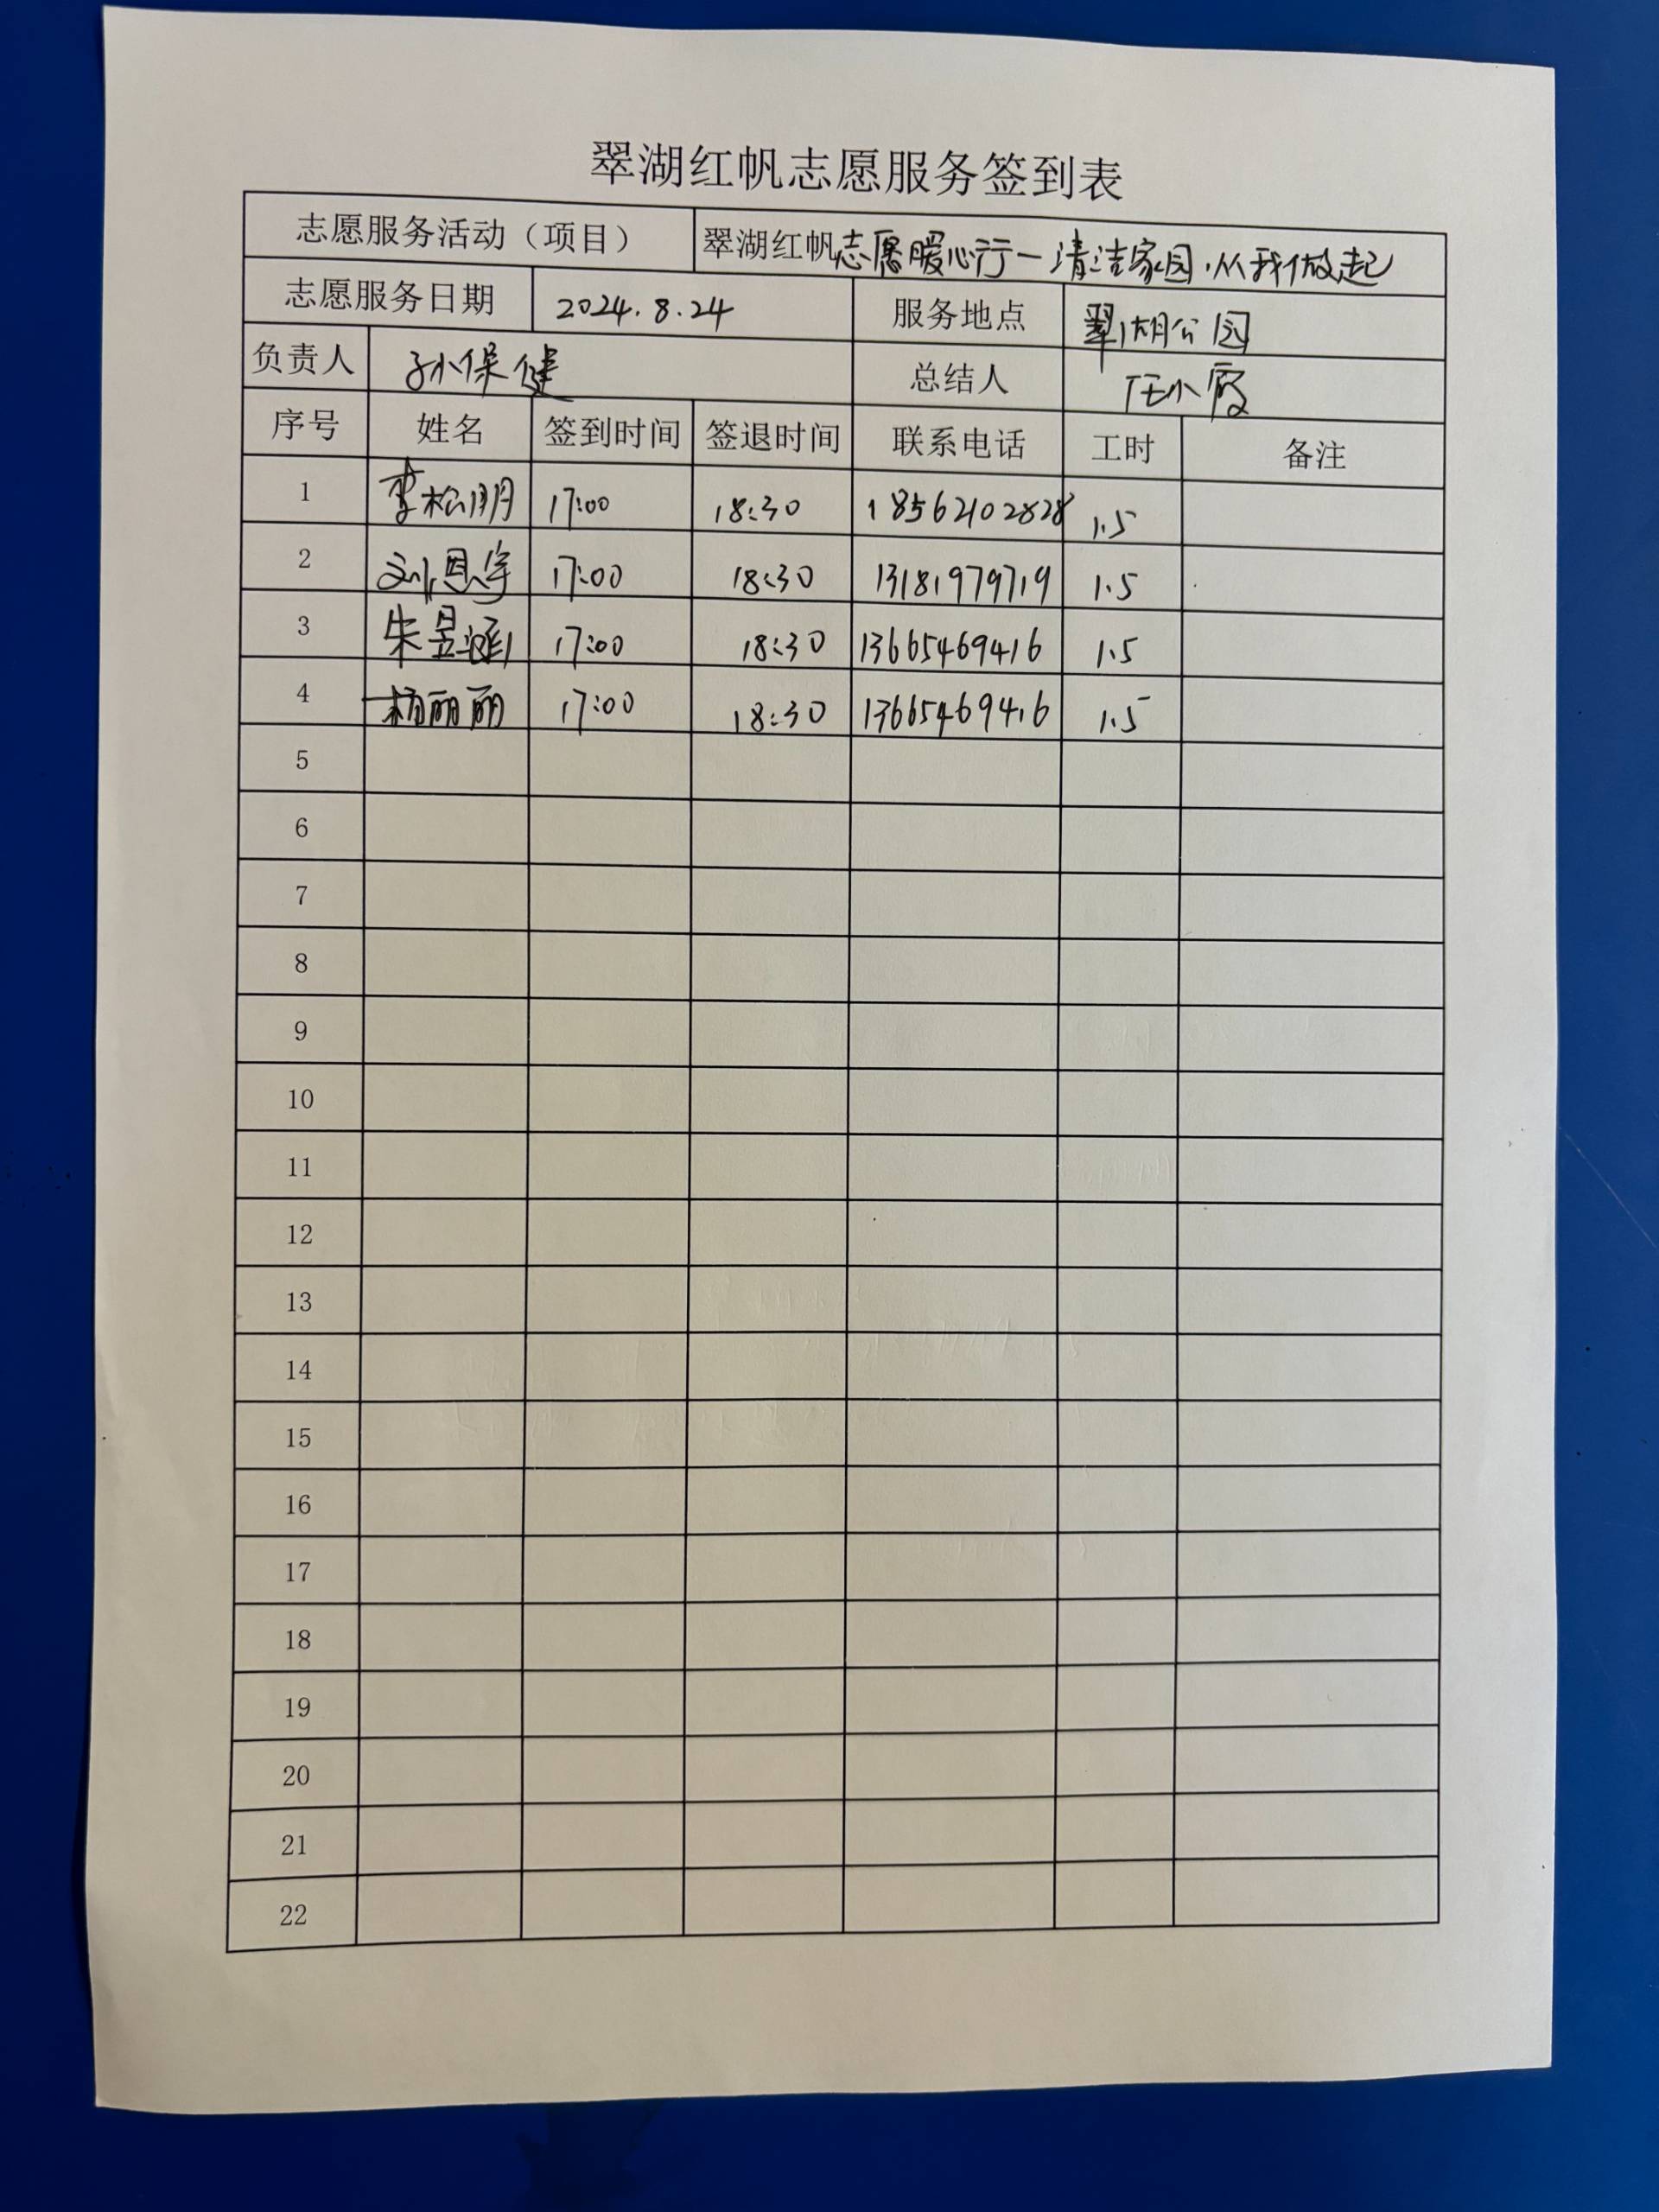 翠湖红帆志愿服务签到表
志愿服务活动（项目） 翠湖红帆志愿暖心行一清洁家园.从我做起
志愿服务日期 2024.8.24 服务地点 翠湖公园
负责人 孙保健 总结人 任小霞
序号 姓名 签到时间 签退时间 联系电话 工时 备注
1 李松明 17:00 18:30 18562102828 1.5
2 刘恩宇 17:00 18:30 13181979719 1.5
3 朱昱涵 17:00 18:30 13665469416 1.5
4 杨丽丽 17:00 18:30 13665469416 1.5
5
6
7
8
9
10
11
12
13
14
15
16
17
18
19
20
21
22